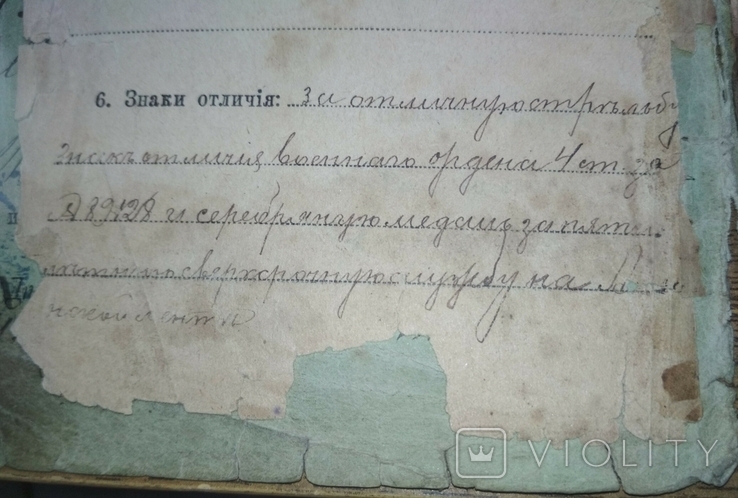 6. Знаки отличія: За отличную стрѣльбу
Знакъ отличія военнаго ордена 4 ст за
и серебряную медаль за пяти
лѣтнюю сверхсрочную службу на
ленти
VIOLITY